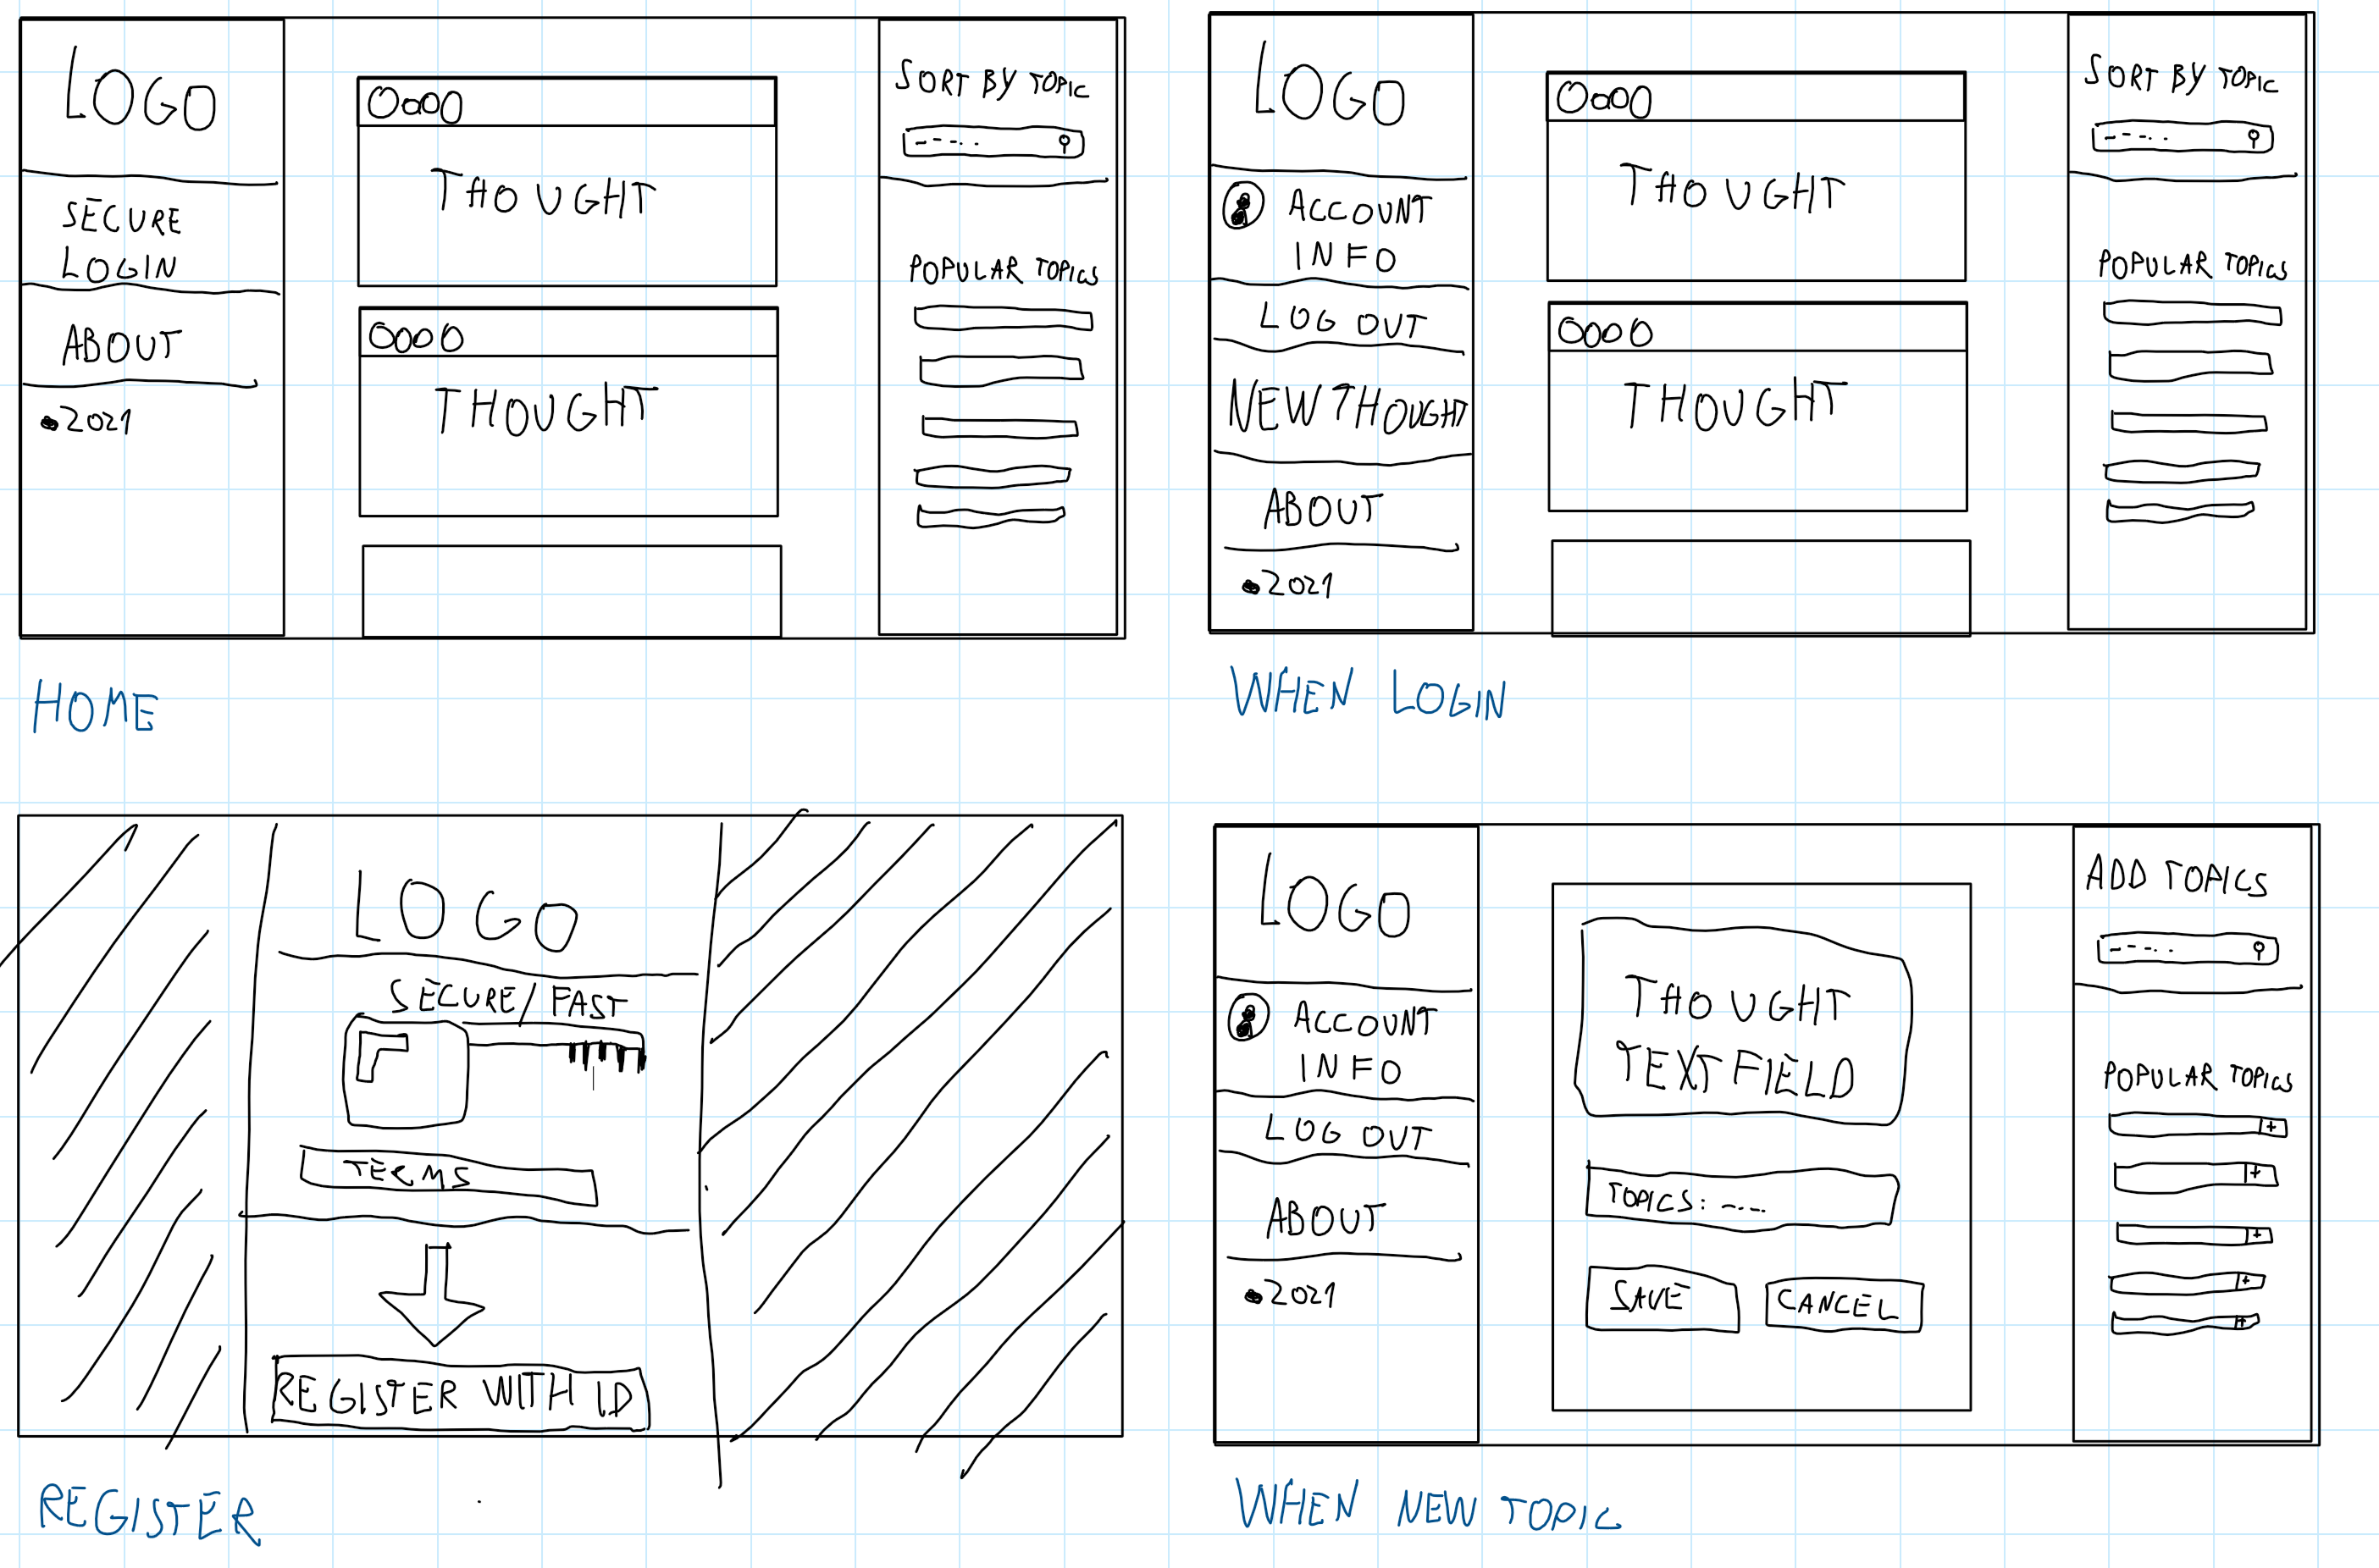 LOGO
SECURE
LOGIN
ABOUT
2021
THOUGHT
THOUGHT
SORT BY TOPIC
POPULAR TOPICS
HOME
LOGO
ACCOUNT
INFO
LOG OUT
NEW THOUGHT
ABOUT
2021
THOUGHT
THOUGHT
SORT BY TOPIC
POPULAR TOPICS
WHEN LOGIN
LOGO
SECURE/FAST
TERMS
REGISTER WITH ID
REGISTER
LOGO
ACCOUNT
INFO
LOG OUT
ABOUT
2021
THOUGHT
TEXT FIELD
TOPICS: ----
SAVE
CANCEL
ADD TOPICS
POPULAR TOPICS
+
+
+
+
+
WHEN NEW TOPIC